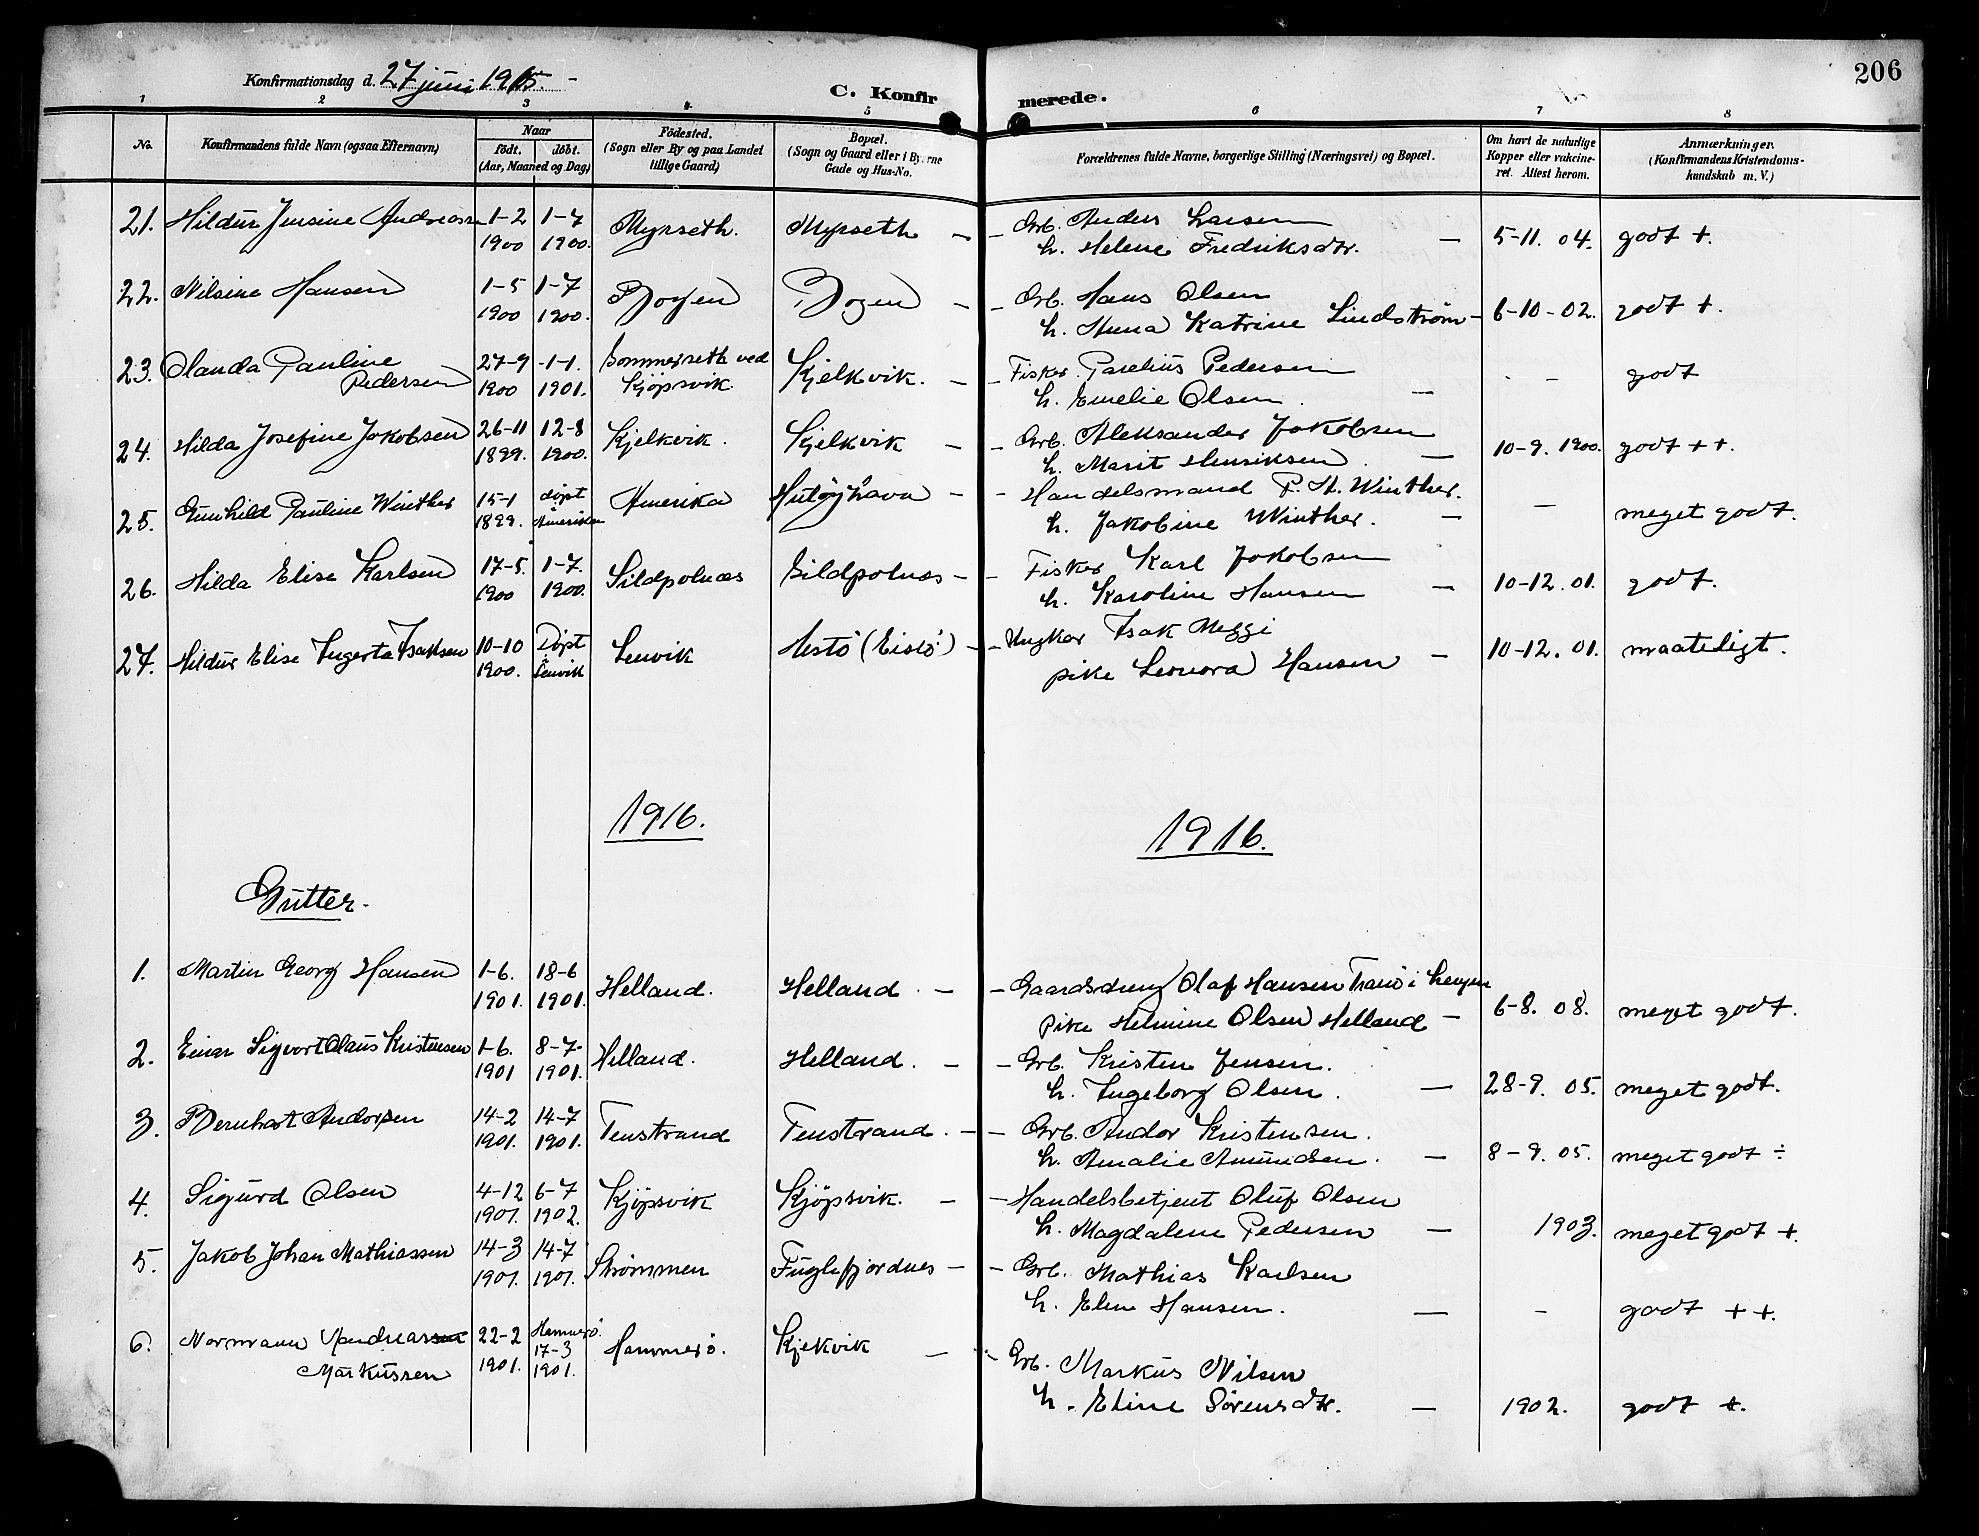 206
Konfirmationsdag d. 27 juni 1915.
C. Konfirmerede.
1 2 3 4 5 6 7 8
No.
Konfirmandens fulde Navn (ogsaa Efternavn)
Naar
født. døbt.
(Aar, Maaned og Dag)
Födested.
(Sogn eller By og paa Landet
tillige Gaard)
Bopæl.
(Sogn og Gaard eller i Byerne
Gade og Hus-No.
Forældrenes fulde Navne, borgerlige Stilling (Næringsvei) og Bopæl.
Om havt de naturlige
Kopper eller vakcine-
ret. Attest herom.
Anmærkninger.
(Konfirmandens Kristendoms-
kundskab m. V.)
21. Hildur Jensine Andreassen 1-2 1-7 Myrseth. Myrseth - - Grb. Anders Larsen
1900 1900. h. Helene Fredriksdtr. - 5-11. 04. godt +.
22. Nilsine Hansen 1-5 1-7 Bogen Bogen - - Grb. Hans Olsen
1900 1900. h. Anna Katrine Lindstrøm - 6-10-02. godt +.
23. Olanda Pauline 27-9 -1-1. Sommerseth ved Kjelkvik. - - Fisker. Parelius Pedersen
Pedersen 1900 1901. Kjöpsvik. h. Emelie Olsen. - - - godt
24. Hilda Josefine Jakobsen 26-11 12-8 Kjelkvik. Kjelkvik - - Grb. Aleksander Jakobsen
1899. 1900. h. Marit Henriksen. - 10-9. 1900. godt ++.
25. Gunhild Pauline Winther 15-1 døpt Amerika - - Handelsmand P. A. Winther.
1899. Amerika h. Jakobine Winther. - - meget godt.
26. Hilda Elise Karlsen 17-5. 1-7. Sildpolnæs Sildpolnæs - - Fisker Karl Jakobsen
1900 1900. h. Karoline Hansen - 10-12. 01. godt.
27. Hildur Elise Ingerta Isaksen 10-10 Døpt Lenvik Aestö (Eistö) - - Ungkar Isak Meggi
1900. Lenvik pike Leonora Hansen - 10-12. 01. maateligt.
1916. 1916.
Gutter.
1. Martin Georg Hansen 1-6. 18-6 Helland. Helland. - - Gaardsdreng Olaf Hansen Tranö i
1901. 1901. pike Helmine Olsen Helland - 6-8. 08. meget godt.
2. Einar Sigvart Olaus Kristensen 1-6. 8-7- Helland. Helland. - - Grb. Kristen Jensen.
1901 1901. h. Ingeborg Olsen. - 28-9. 05. meget godt.
3. Bernhart Andorsen 14-2 14-7 Tenstrand Tenstrand. - - Grb. Andor Kristensen.
1901. 1901. h. Amalie Amundsen. - 8-9. 05. meget godt ÷
4. Sigurd Olsen 4-12 6-7 Kjöpsvik Kjöpsvik. - - Handelsbetjent Oluf Olsen
1901. 1902. h. Magdalene Pedersen - 1903. meget godt +.
5. Jakob Johan Mathiassen 14-3 14-7 Strømmen Fuglefjordnes - - Grb. Mathias Karlsen
1901. 1901. h. Eline Hansen. - - godt ++.
6. Normann Andreassen 22-2 Hammerö. Hammerö. Kjelkvik - - Grb. Markus Nilsen
Markussen 1901. 17-3
1901. h. Eline Sörensdtr. - 1902. godt +.